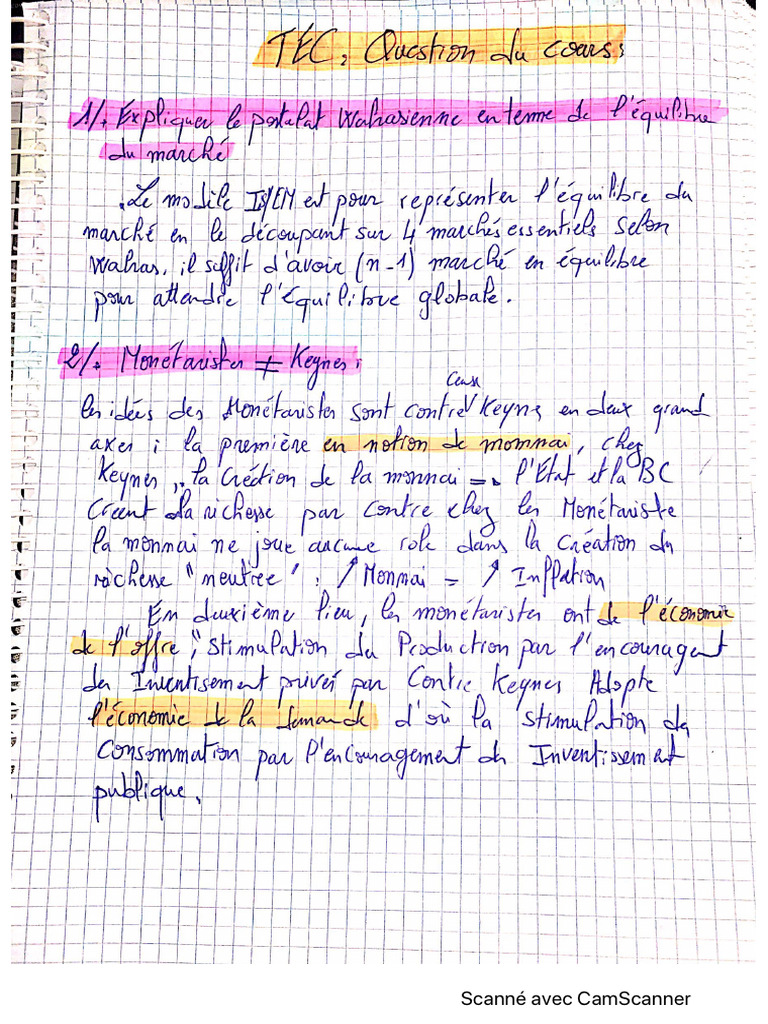 TEC : Question du cours :
1/. Expliquer le postulat Walrasienne en terme de l'équilibre
du marché
. Le modèle IS/LM est pour représenter l'équilibre du
marché en le découpant sur 4 marchés essentiels selon
Walras, il suffit d'avoir (n-1) marché en équilibre
pour attendre l'équilibre globale.
2/. Monétaristes ≠ Keynes :
Ceux
les idées des Monétaristes sont contre Keyns en deux grand
axes ; la première en notion de monnai, chez
Keynes, la Création de la monnai => l'Etat et la BC
Créent la richesse par contre chez les Monétariste
la monnai ne joue aucune role dans la création du
richesse "neutre" : ↑ Monnai = ↑ Inflation
En deuxième lieu, les monétaristes ont de l'économie
de l'offre, Stimulation du Production par l'encouragent
des Inventissement privés par Contre Keynes Adopte
l'économie de la demande d'où la stimulation de
Consommation par l'encouragement des Inventissement
publique.
Scanné avec CamScanner